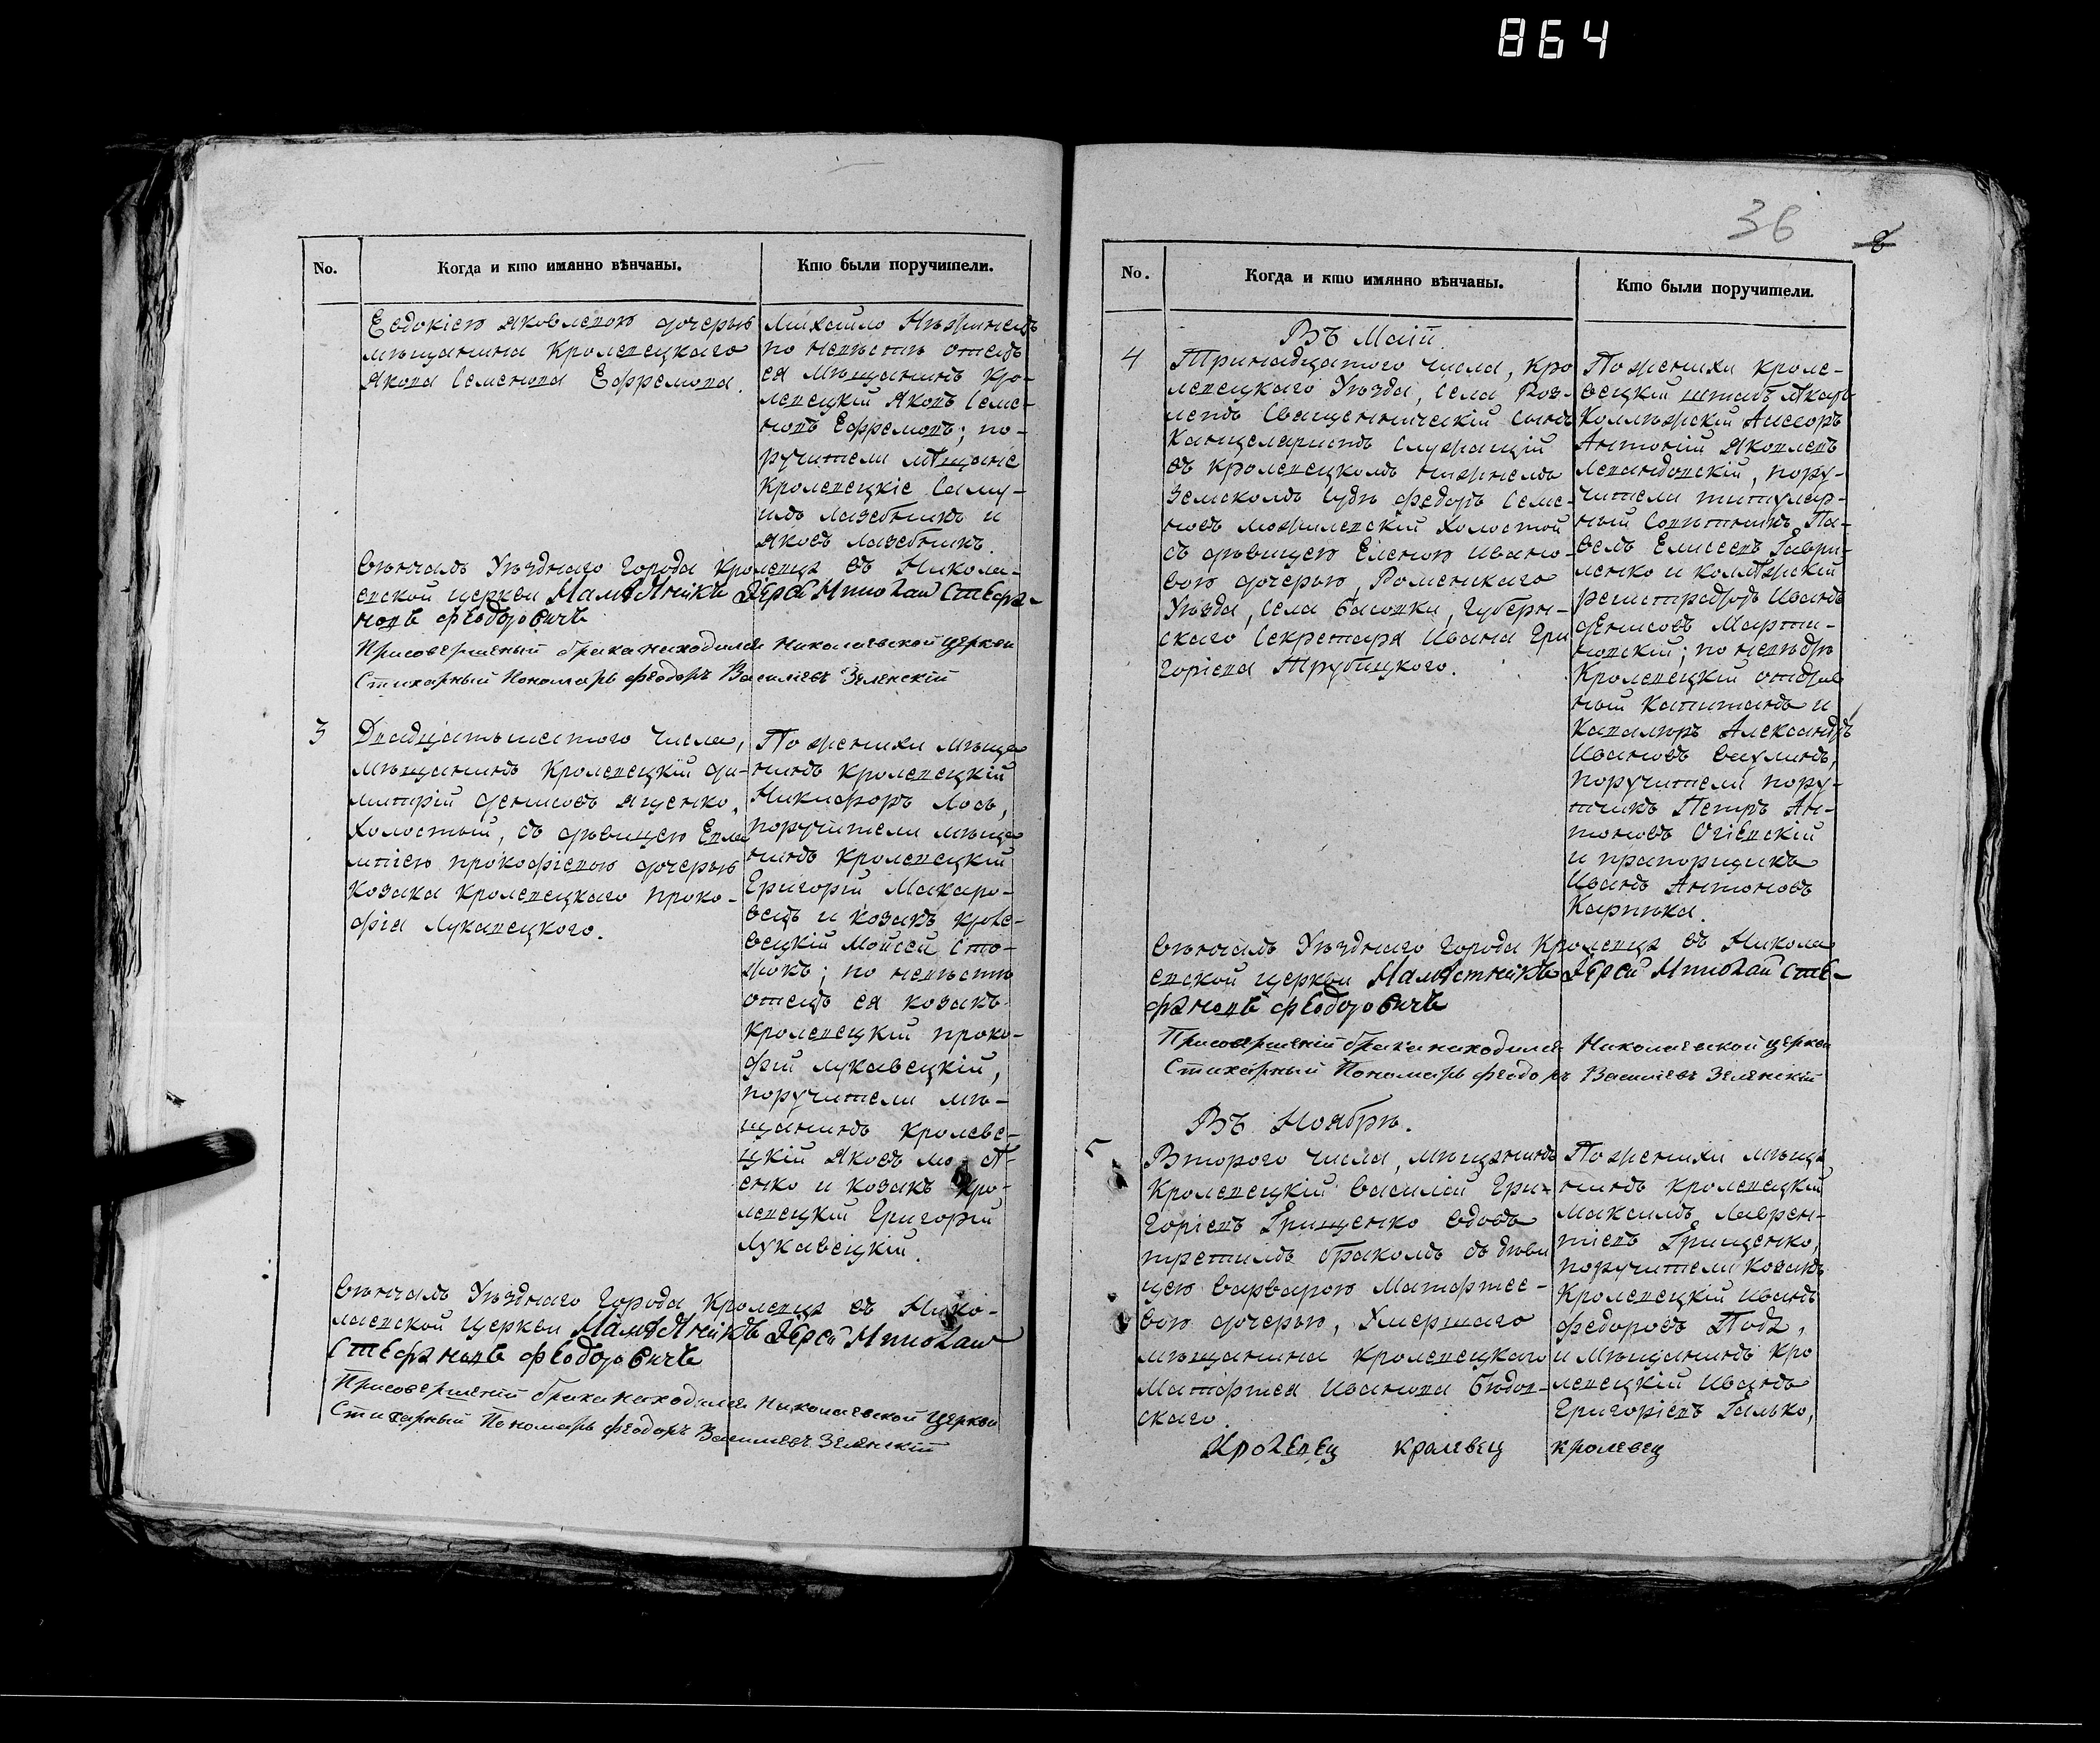 864
No.
Когда и кто имянно вѣнчаны.
Кто были поручители.
Евдокіею Яковлевою дочерью
мѣщанина Кролевецкаго
Якова Семенова Ефремова.
Михайло Нѣжинецъ
по невѣстѣ отецъ
ея мѣщанинъ Кро-
левецкій Яковъ Семе-
новъ Ефремовъ; по-
ручители мѣщане
Кролевецкіе Саму-
илъ Лазебникъ и
Яковъ Лазебникъ.
Вѣнчалъ Уѣзднаго Города Кролевца въ Никола-
евской церкви Намѣстникъ Іерей Николай Стефа-
новъ Феодоровичъ
При совершеніи брака находился Николаевской церкви
Стихарный Пономарь Феодоръ Васильевъ Зеленскій
3
Двадцать шестого числа,
мѣщанинъ Кролевецкій Ди-
митрій Денисовъ Яценко,
холостый, съ дѣвицею Евла
мпіею Прокофіевою дочерью
козака Кролевецкаго Проко-
фія Лукавецкого.
По женихи мѣща
нинъ Кролевецкій
Никифоръ Лось,
поручители мѣща
нинъ Кролевецкій
Григорій Макаро-
вецъ и козакъ Кроле-
вецкій Мойсей Сто-
жокъ; по невѣстѣ
отецъ ея козакъ
Кролевецкій Проко-
фій Лукавецкій,
поручители мѣ-
щанинъ Кролеве-
цкій Яковъ
енко и козакъ Кро-
левецкій Григорій
Лукавецкій.
Вѣнчалъ Уѣзднаго Города Кролевца въ Нико-
лаевской церкви Намѣстникъ Іерей Николай
Стефановъ Феодоровичъ
При совершеніи брака находился Николаевской церкви
Стихарный Пономарь Феодоръ Васильевъ Зеленскій
36
No.
Когда и кто имянно вѣнчаны.
Кто были поручители.
Въ Маіи
4
Тринадцатого числа, Кро
левецкаго Уѣзда, села
Священническій сынъ
Канцеляристъ служащій
въ Кролевецкомъ нижнемъ
Земскомъ Судѣ Федоръ Семе-
новъ Могилевскій холостой
съ дѣвицею Еленою Ивано-
вою дочерью, Роменскаго
Уѣзда, села Басовки, Губерн-
скаго Секретаря Ивана Гри
горіева Трубицкого.
По женихи Кроле-
вецкій штабъ лѣкарь
Коллѣжскій Ассесоръ
Антоній Яковлевъ
Левандовскій, пору-
чители титуляр-
ный Совѣтникъ Па-
велъ Елисеевъ Гаври-
ленко и коллѣжскій
регистраторъ Иванъ
Денисовъ Марти-
новскій; по невѣстѣ
Кролевецкій
ный Капитанъ и
Кавалеръ Александръ
Ивановъ Ваулинъ,
поручители пору-
тчикъ Петръ Ан-
тоновъ Огіевскій
и прапорщикъ
Иванъ Антоновъ
Карпѣка.
Вѣнчалъ Уѣзднаго Города Кролевца въ Никола
евской церкви Намѣстникъ Іерей Николай Сте-
фановъ Феодоровичъ
При совершеніи брака находился Николаевской церкви
Стихарный Пономарь Феодоръ Васильевъ Зеленскій
Въ Ноябрѣ.
5
Второго числа, мѣщанинъ
Кролевецкій Василій Гри-
горіевъ Грищенко вдовъ
третимъ бракомъ съ дѣви
цею Варварою Матфтее-
вою дочерью, Умершаго
мѣщанина Кролевецкаго
Матфтея Иванова Бѣдов-
скаго.
По женихи мѣща
нинъ Кролевецкій
Максимъ Лаврен-
тіевъ Грищенко,
поручители козакъ
Кролевецкій Иванъ
Федоровъ
и мѣщанинъ Кро
левецкій Иванъ
Григоріевъ Галько,
Кролевец кролевец кролевец